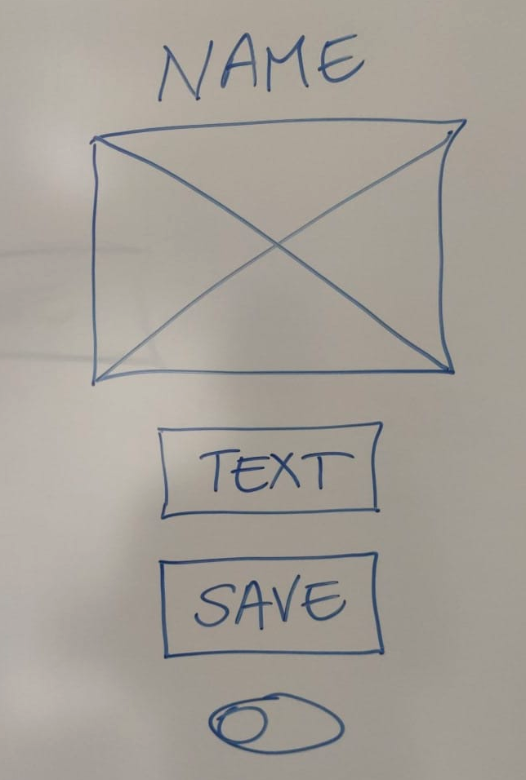 NAME
TEXT
SAVE